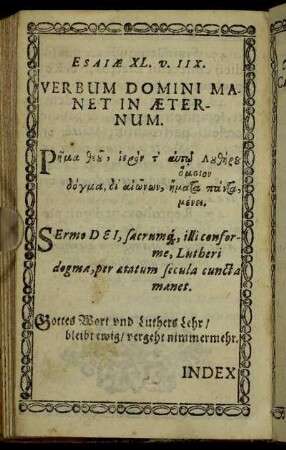 ESAIÆ XL. v. IIX.
VERBUM DOMINI MA-
NET IN ÆTER-
NUM.
Ρῆμα θεοῦ, ἱερόν τ' αὐτῷ Λυθήρου
ὅμοιον
δόγμα, δι' αἰώνων, ἤματα πάντα,
μένει.
SErmo DEI, sacrumq́, illi confor-
me, Lutheri
dogma, per ætatum secula cuncta
manet.
Gottes Wort vnd Luthers Lehr/
bleibt ewig/ vergeht nimmermehr.
INDEX